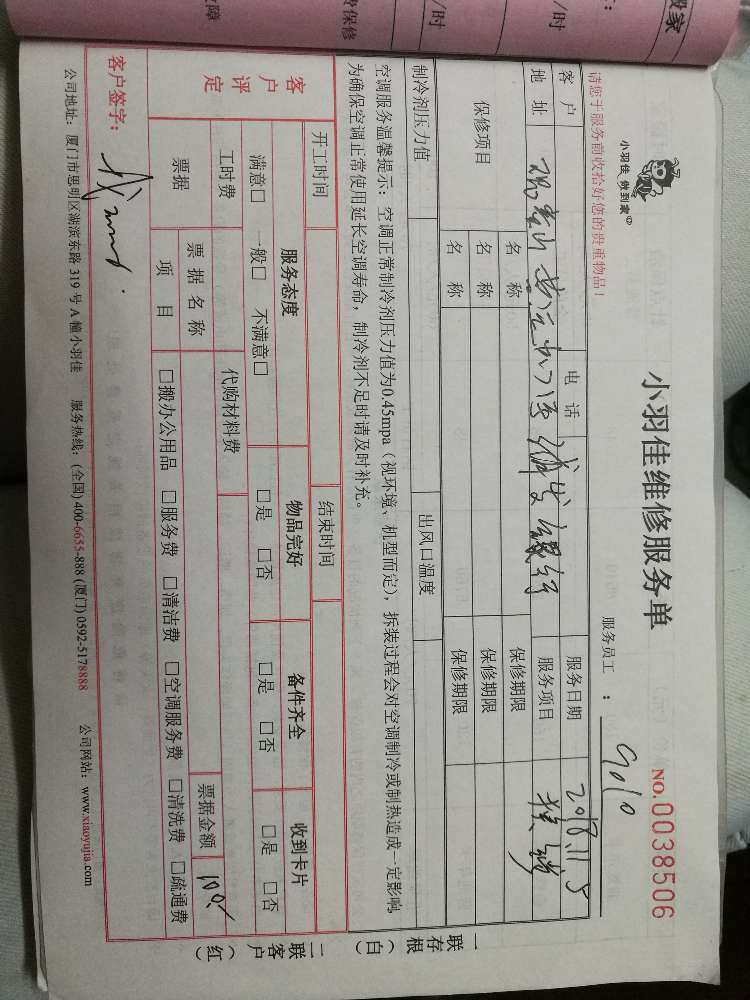 搬家
/时
/时
费保修
故障
小羽佳 做到家
小羽佳维修服务单
NO.0038506
请您于服务前收拾好您的贵重物品！
服务员工 ：
9010
客 户
电 话
服务日期
2018.11.5
地 址
服务项目
保修项目
名 称
保修期限
名 称
保修期限
名 称
保修期限
制冷剂压力值
出风口温度
空调服务温馨提示：空调正常制冷剂压力值为0.45mpa（视环境、机型而定），拆装过程会对空调制冷或制热造成一定影响
为确保空调正常使用延长空调寿命，制冷剂不足时请及时补充。
开工时间
结束时间
客 户 评 定
服务态度
物品完好
备件齐全
收到卡片
满意□ 一般□ 不满意□
□是 □否
□是 □否
□是 □否
工时费
代购材料费
票据
票 据 名 称
票据金额
项 目
□搬办公用品 □服务费 □清洁费 □空调服务费 □清洗费 □疏通费
客户签字：
公司地址：厦门市思明区湖滨东路 319 号 A 幢小羽佳 服务热线：(全国) 400-6655-888 (厦门) 0592-5178888 公司网站：www.xiaoyujia.com
一联存根（白）
二联客户（红）